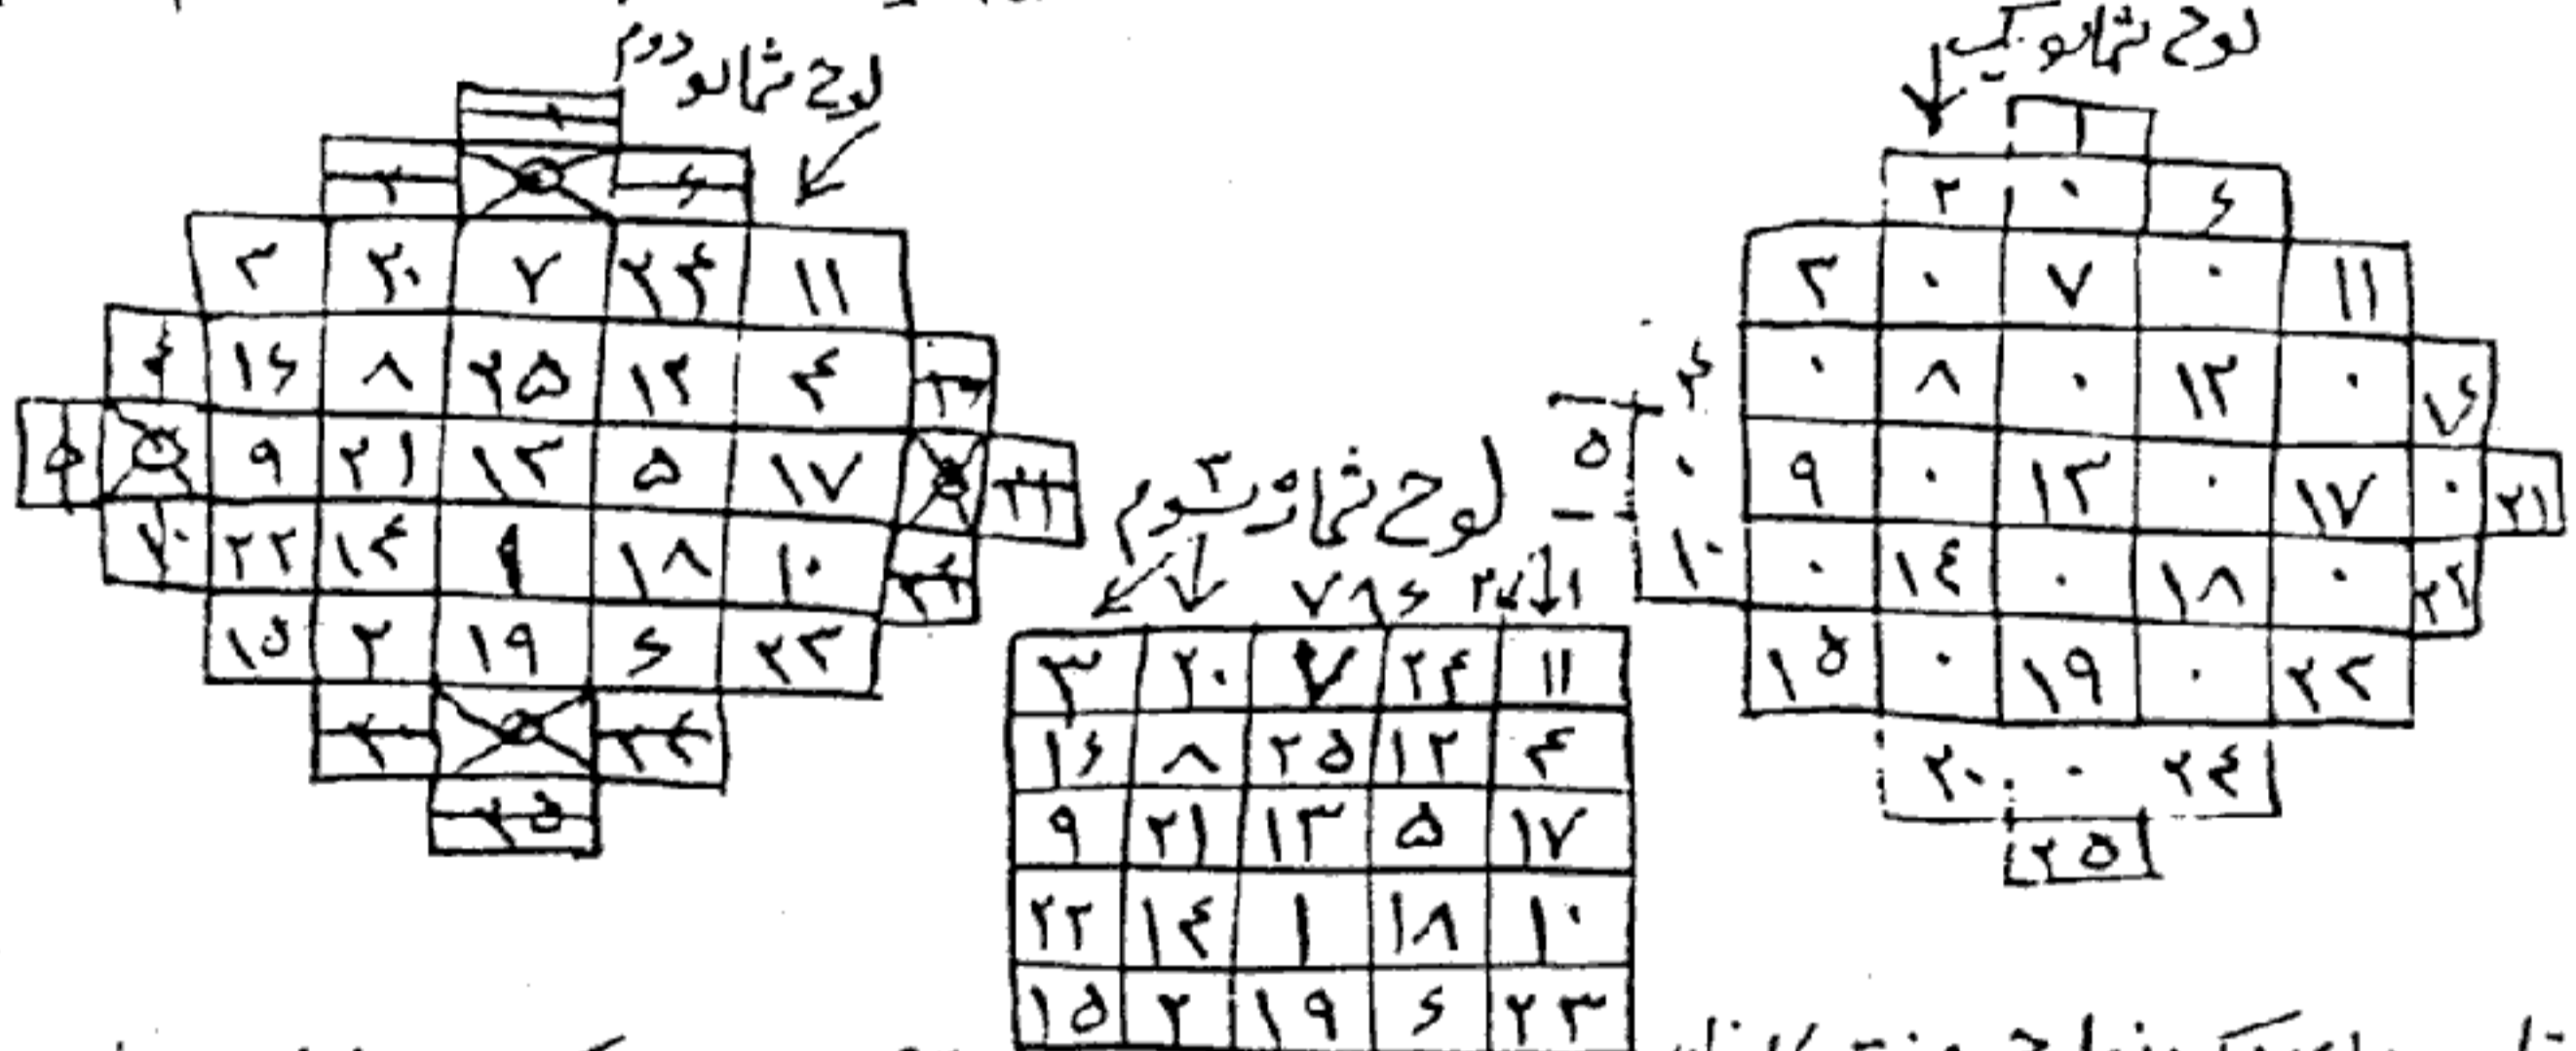 لوح شماره یک
۱
۲ ۰ ۶
۳ ۰ ۷ ۰ ۱۱
۴ ۰ ۸ ۰ ۱۲ ۰ ۱۶
۵ ۰ ۹ ۰ ۱۳ ۰ ۱۷ ۰ ۲۱
۱۰ ۰ ۱۴ ۰ ۱۸ ۰ ۲۲
۱۵ ۰ ۱۹ ۰ ۲۳
۲۰ ۰ ۲۴
۲۵
لوح شماره دوم
۱
۲ ۶
۳ ۲۰ ۷ ۲۴ ۱۱
۴ ۱۶ ۸ ۲۵ ۱۲ ۴ ۱۶
۵ ۹ ۲۱ ۱۳ ۵ ۱۷ ۲۱
۱۰ ۲۲ ۱۴ ۱ ۱۸ ۱۰ ۲۲
۱۵ ۲ ۱۹ ۶ ۲۳
۲۰ ۲۴
۲۵
لوح شماره ۳ سوم
۷۸۶
۳ ۲۰ ۷ ۲۴ ۱۱
۱۶ ۸ ۲۵ ۱۲ ۴
۹ ۲۱ ۱۳ ۵ ۱۷
۲۲ ۱۴ ۱ ۱۸ ۱۰
۱۵ ۲ ۱۹ ۶ ۲۳